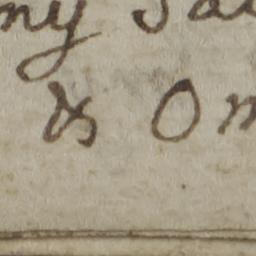 ny Sa
& Om